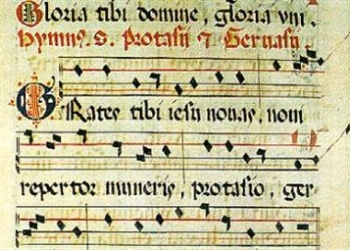 Gloria tibi domine, gloria uni
Hymnus S. Protasii 7 Gervasii
Grates tibi iesu novas, novi
repertor muneris, protasio, ger